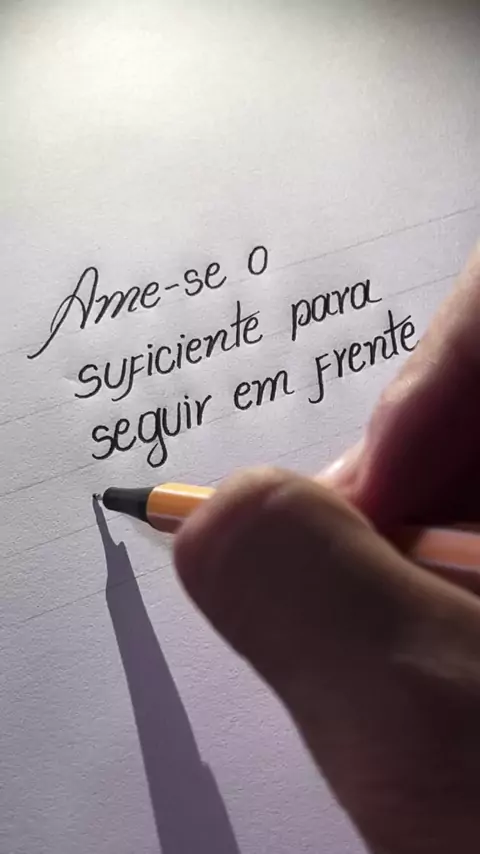 Ame-se o
suficiente para
seguir em frente